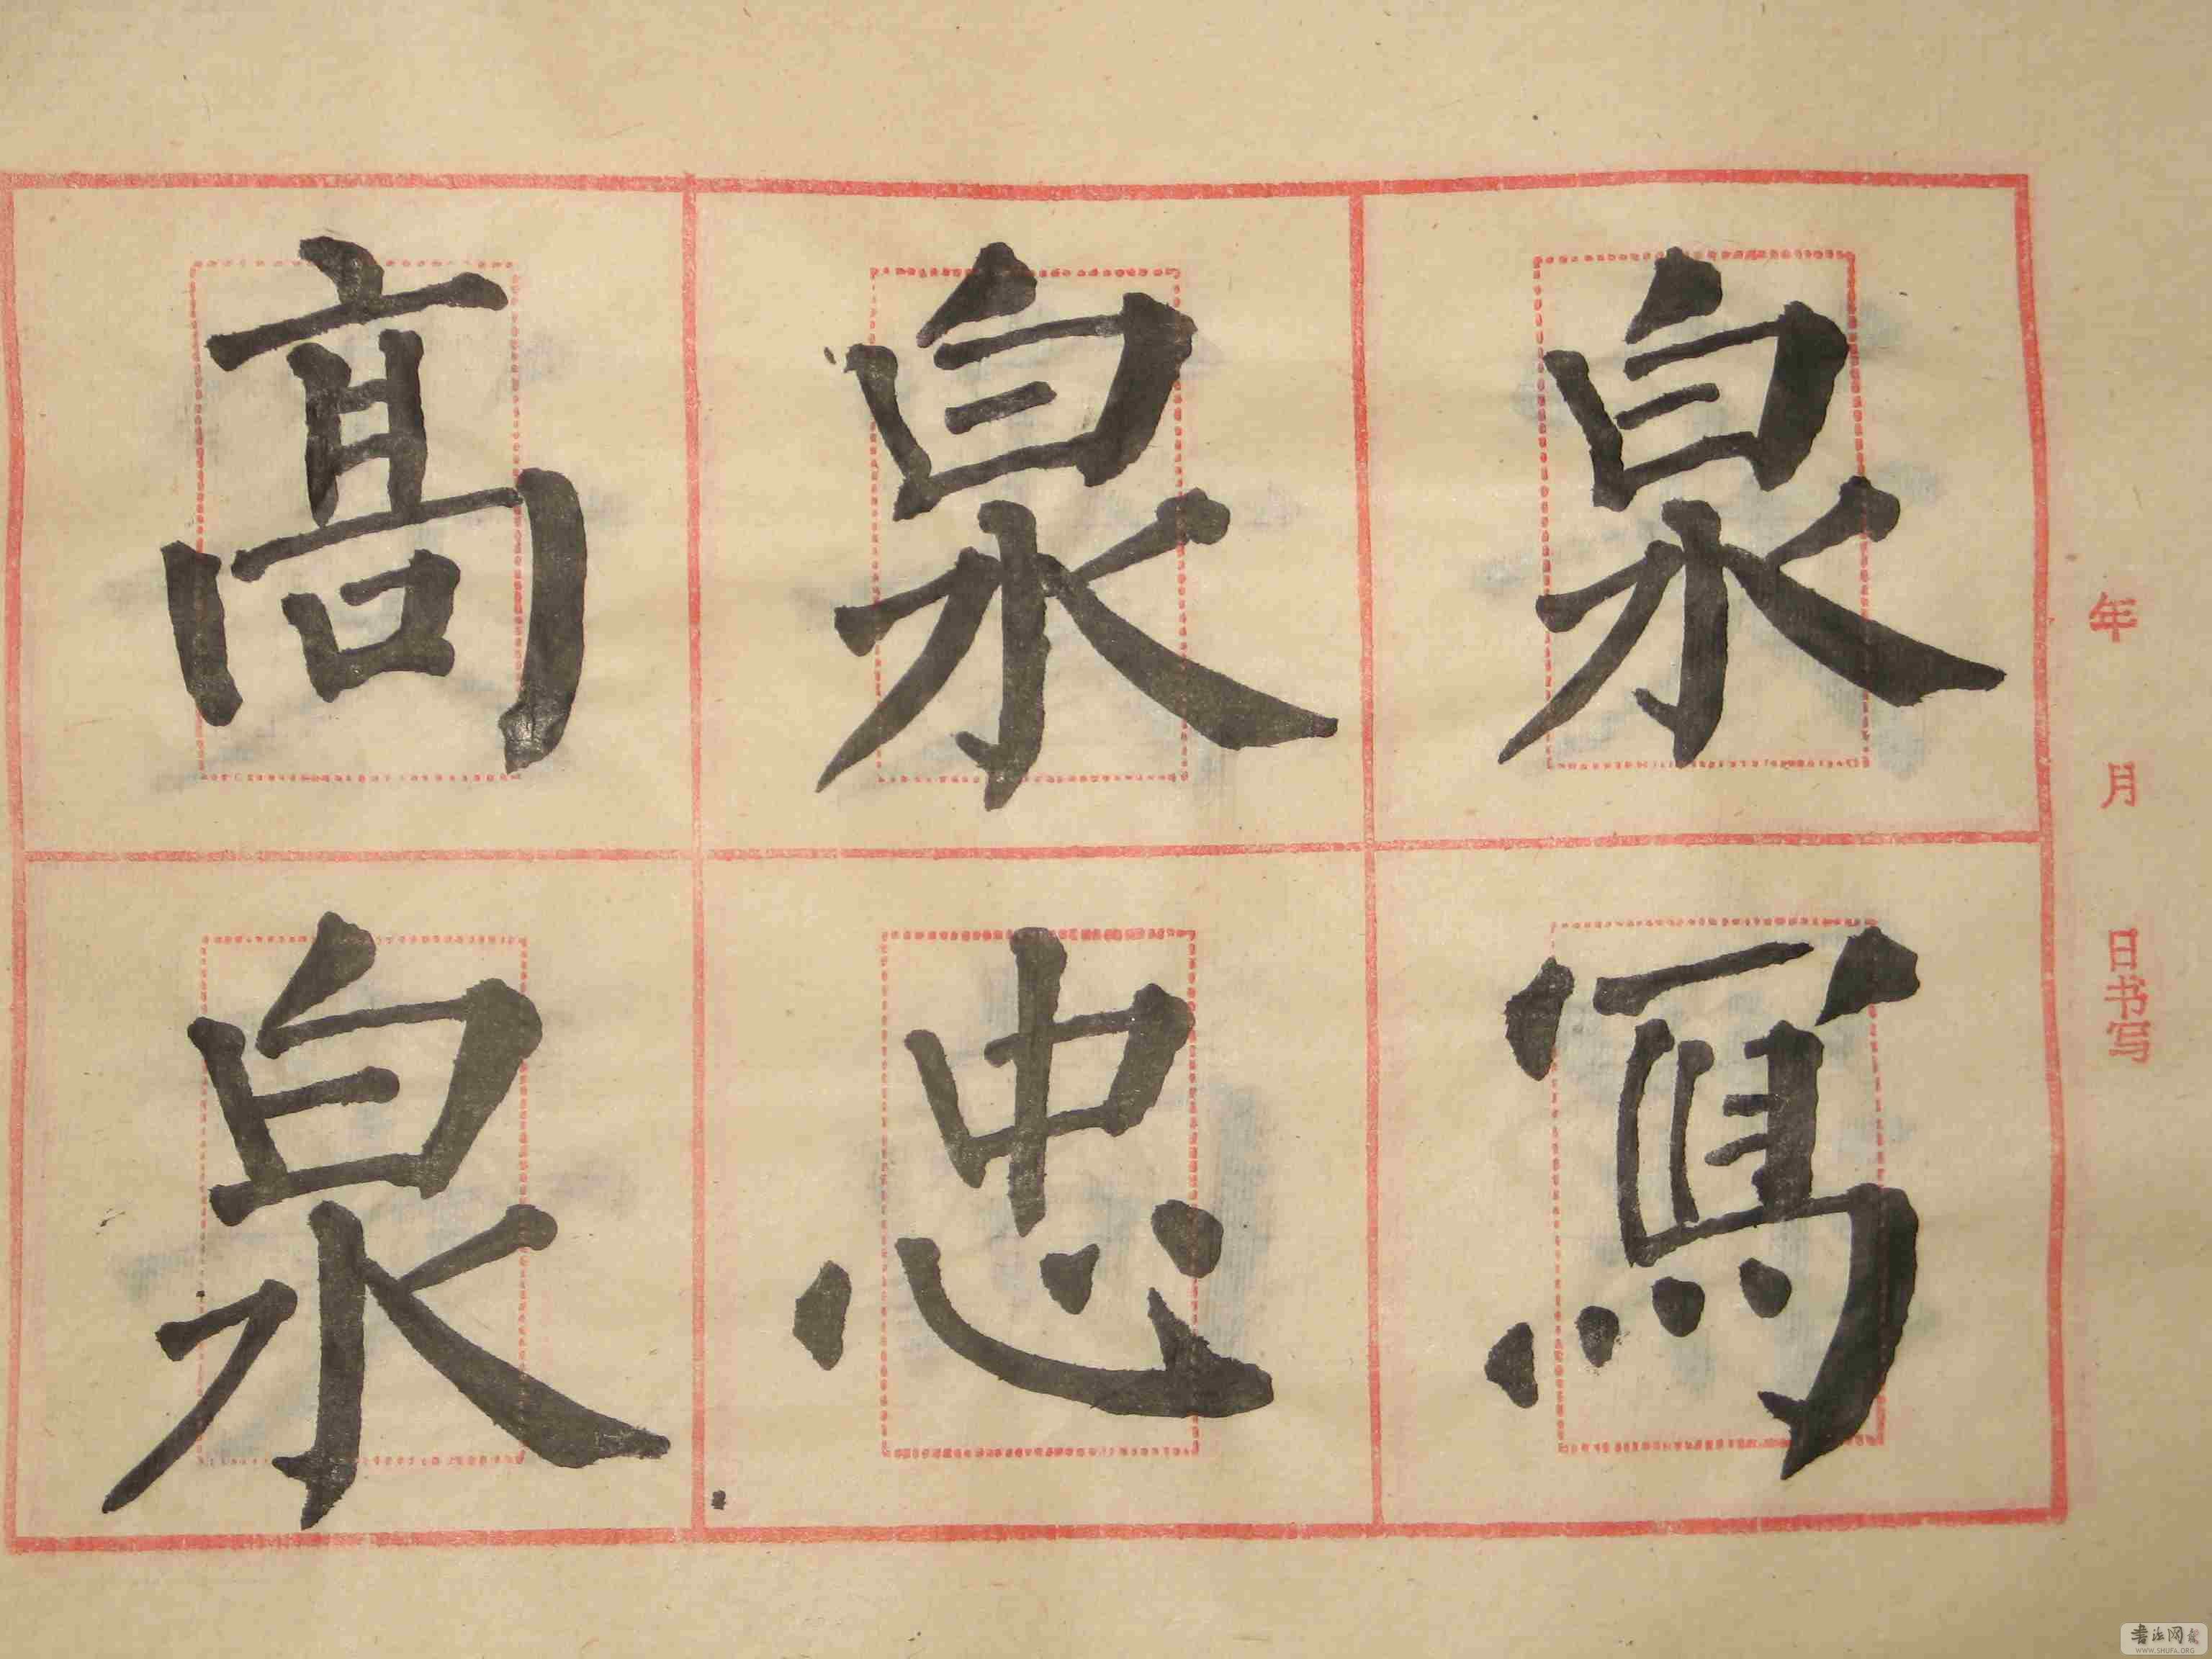 年 月 日书写
泉冩
泉忠
高泉
書法网
WWW.SHUFA.ORG